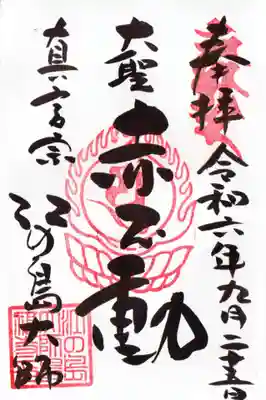 奉拝
令和六年九月二十五日
大聖
赤不動
真言宗
江の島大師